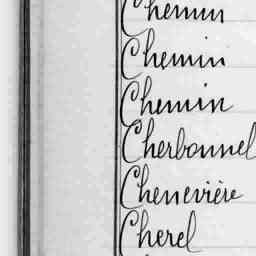 Chemin
Chemin
Chemin
Cherbonnel
Chenevière
Cherel